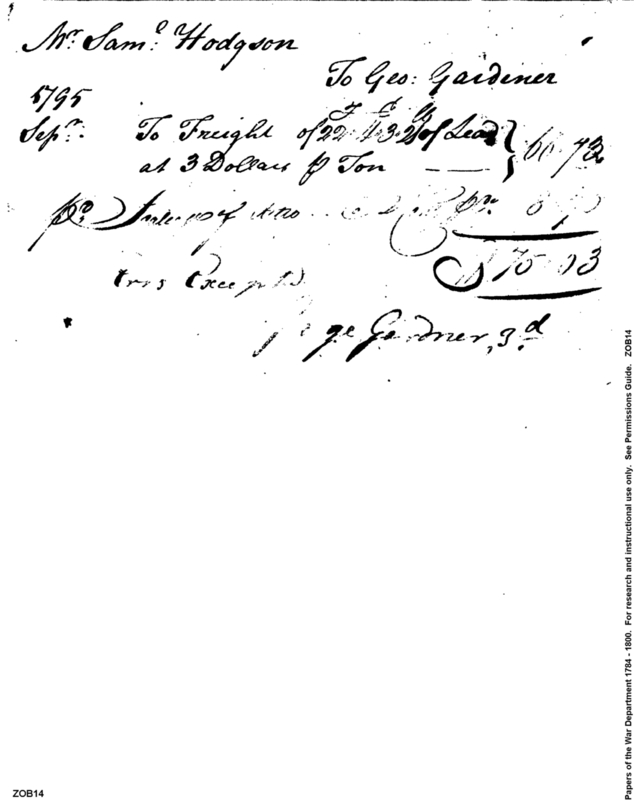 Mr. Saml. Hodgson
To Geo: Gardiner
1795
T C Q
Sepr. To Freight of 22 4 3 of Lead
at 3 Dollars Ton — 66 73
pd
75 03
Errs Excepted
George Gardner, 3d
Papers of the War Department 1784 - 1800. For research and instructional use only. See Permissions Guide. ZOB14
ZOB14